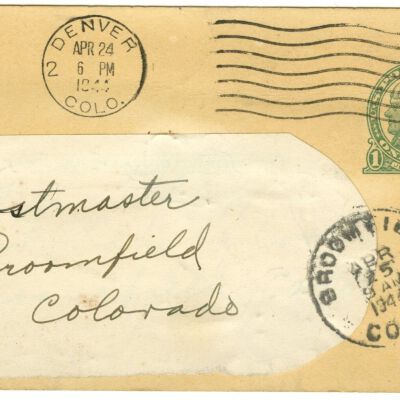 DENVER
APR 24
2 6 PM
1944
COLO.
1
stmaster
Broomfield
Colorado
BROOMFIE
APR
25
9 AM
1944
CO